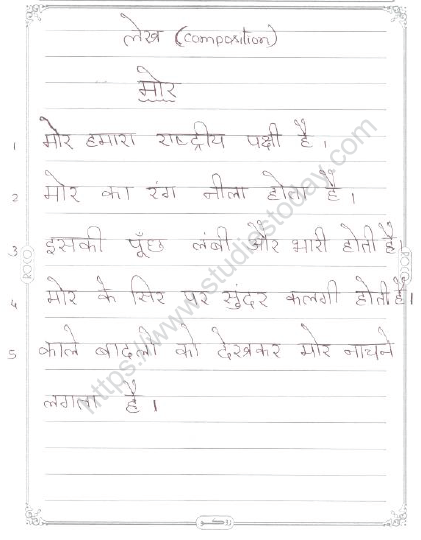 लेख (composition)
मोर
1 मोर हमारा राष्ट्रीय पक्षी है ।
2 मोर का रंग नीला होता है ।
3 इसकी पूँछ लंबी और भारी होती है।
4 मोर के सिर पर सुंदर कलगी होती है ।
5 काले बादलो को देखकर मोर नाचने
लगता है ।
https://www.studiestoday.com